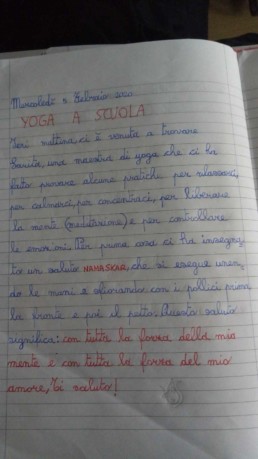 Mercoledì 5 Febbraio 2020
YOGA A SCUOLA
Ieri mattina, ci è venuta a trovare
una maestra di yoga che ci ha
fatto provare alcune pratiche per rilassarci,
per calmarci, per concentrarci, per liberare
la mente (meditazione) e per controllare
le emozioni. Per prima cosa ci ha insegna
to un saluto NAMASKAR, che si esegue unen
do le mani e sfiorando con i pollici prima
la fronte e poi il petto. Questo saluto
significa: con tutta la forza della mia
mente e con tutta la forza del mio
amore, Ti saluto!